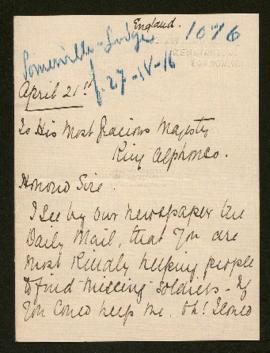 England.
1076
Somerville-Lodge
f. 27-IV-16
April 21st
To His Most Gracious Majesty
King Alphonso.
Honored Sire.
I see by our newspaper the
Daily Mail, that you are
most kindly helping people
to find missing soldiers - If
you could help me, Oh! I